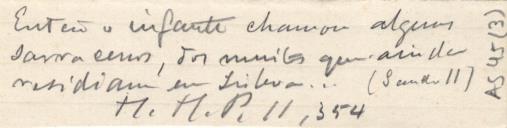 Então o infante chamou alguns
sarracenos, dos muitos que ainda
residiam em Lisboa... (Sancho II)
H. H. P. II, 354
AS 45 (3)